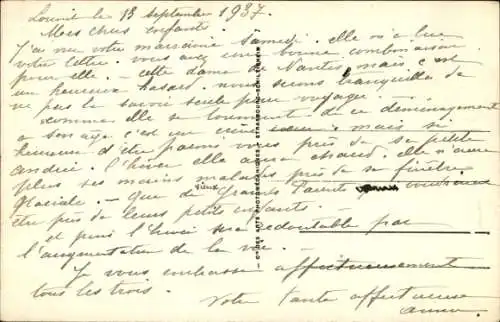 Louvil le 13 septembre 1937.
Mes chers enfants.
J'ai vu votre marraine Samedi. elle m'a lu
votre lettre vous avez une bonne combinaison
pour elle. - cette dame de Nantes, mais c'est
un heureux hasard. nous serons tranquilles de
ne pas la savoir seule pour voyager. -
comme elle se tourmente de ce déménagement
a son age c'est un mais si
heureuse d'être parmi vous près de sa petite
Andrée. l'hiver elle aura chaud. elle n'aura
plus ses mains malades près de sa fenêtre
Glaciale. - Que de Grands Parents
vieux
être près de leurs petits enfants. -
et puis l'hiver sera redoutable par
l'augmentation de la vie. -
Je vous embrasse affectueusement
tous les trois.
Votre tante affectueuse
CIE DES ARTS PHOTOMÉCANIQUES - STRASBOURG-SCHILTIGHEIM